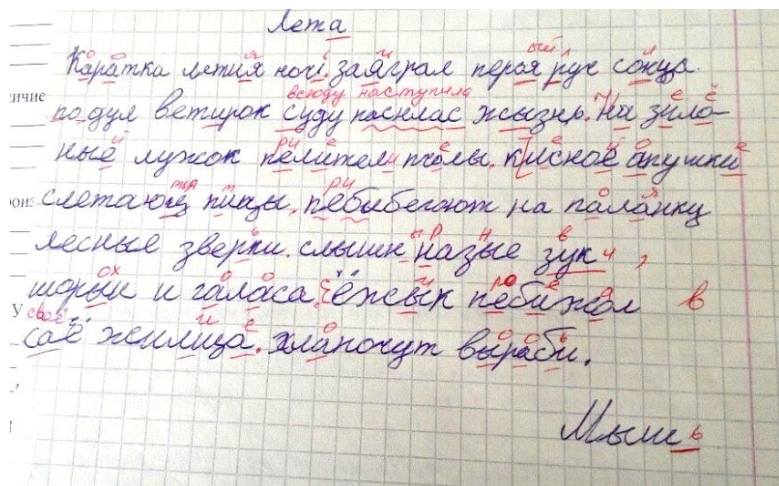 Лета
Каратка летия ноч. заяграл перая руч сонца.
подул ветирок суду паснлас жызнь. На зило-
ные лужок пелители пчолы. к лисной апушки
слетающ пицы. пебибегают на паланку
лесные зверки. слышн назые зук,
шорыи и галаса. ёжык пебижал в
саё жилища. хлапочут выраби.
Мыш